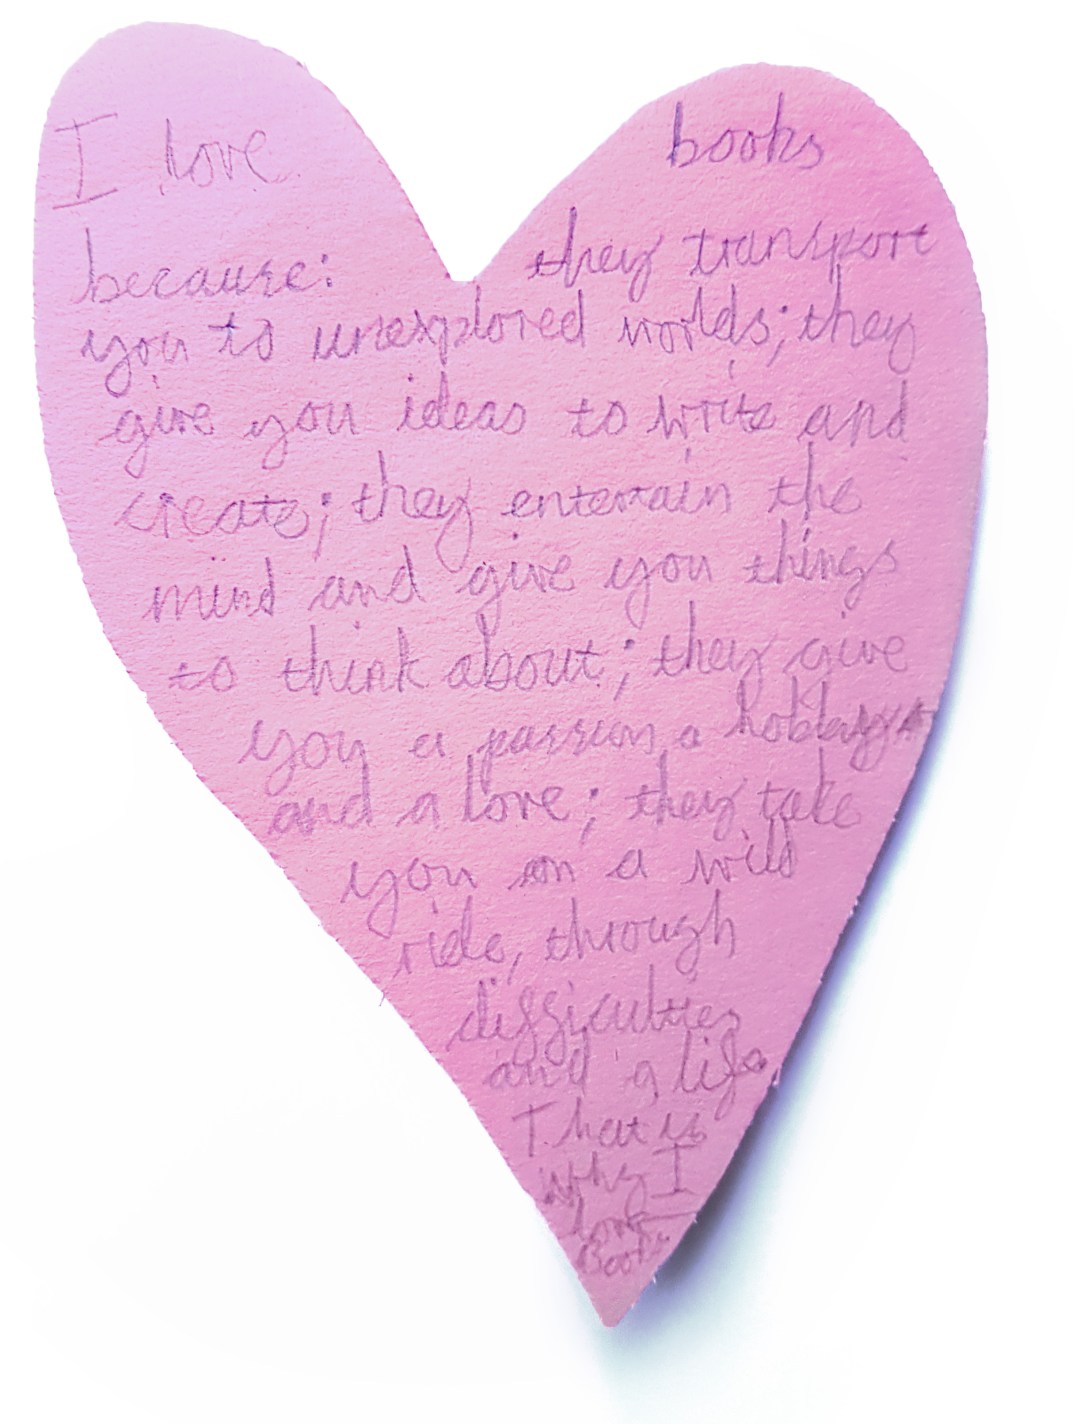 I love books
because: they transport
you to unexplored worlds; they
give you ideas to write and
create; they entertain the
mind and give you things
to think about; they give
you a passion, a hobby
and a love; they take
you on a wild
ride, through
difficulties
and a life.
That is
why I
love
Books